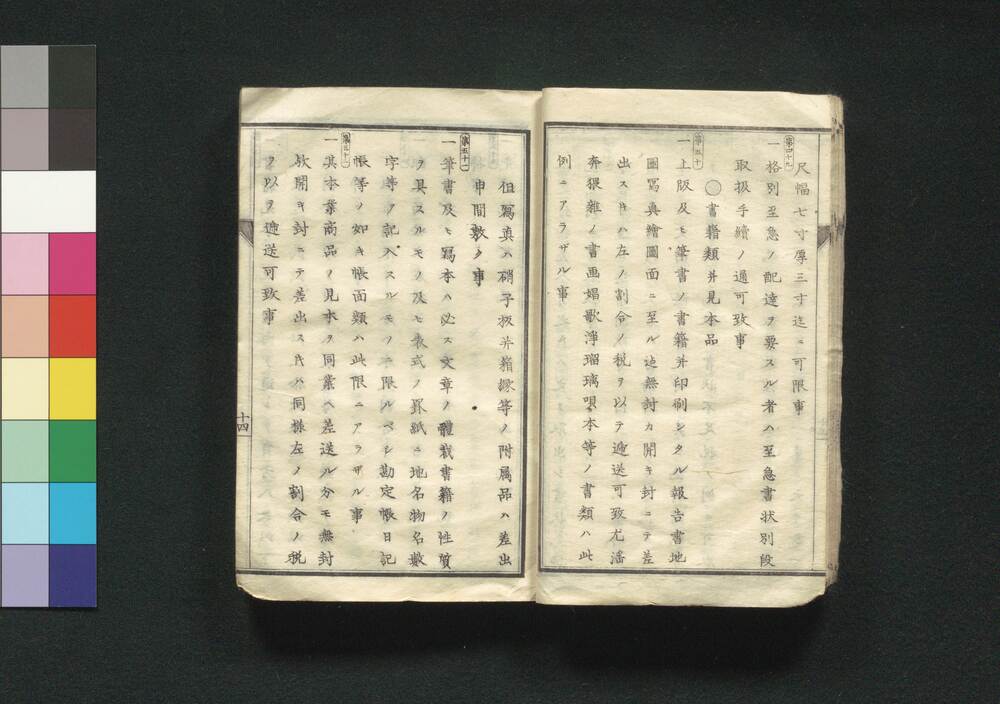 尺幅七寸厚三寸迄ニ可限事
第四十九
一格別至急ノ配達ヲ要スル者ハ至急書状別段
取扱手續ノ通可致事
◯書籍類并見本品
第五十
一上版及ヒ筆書ノ書籍并印刷シタル報告書地
圖寫真繪圖面ニ至ル迄無封カ開キ封ニテ差
出ス片ハ左ノ割合ノ税ヲ以テ遞送可致尤淫
奔猥雜ノ書画娼歌淨瑠璃唄本等ノ書類ハ此
例ニアラザル事
但寫真ハ硝子板并箱縁等ノ附属品ハ差出
申間敷ノ事
第五十一
一筆書及ヒ寫本ハ必ス文章ノ體裁書籍ノ性質
ヲ具スルモノ及ヒ表式ノ罫紙ニ地名物名數
字等ヲ記入スルモノニ限ルベシ勘定帳日記
帳等ノ如キ帳面類ハ此限ニアラザル事
第五十二
一其本業商品ノ見本ヲ同業ヘ差送ル分モ無封
欤開キ封ニテ差出ス片ハ同様左ノ割合ノ税
ヲ以テ遞送可致事
十四